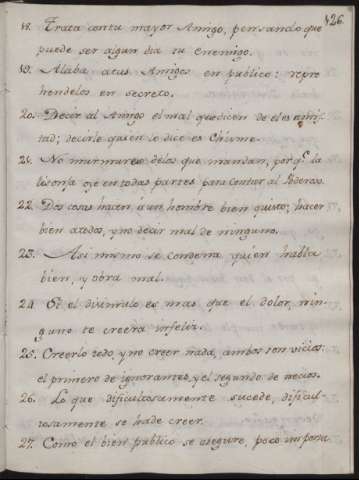 126.
18. Trata con tu mayor Amigo, pensando que
puede ser algun dia tu enemigo.
19. Alaba a tus Amigos en publico: repre
hendelos en secreto.
20. Decir al Amigo el mal que dicen de el es amis
tad; decirle quien le dice es Chisme.
21. No murmures de los que mandan, porq.e la
lisonja oye en todas partes para contar al Poderoso.
22. Dos cosas hacen á un hombre bien quisto; hacer
bien a todos, y no decir mal de ninguno.
23. Asi mismo se condena quien habla
bien, y obra mal.
24. Si el disimulo es mas que el dolor, nin-
guno te creera infeliz.
25. Creerlo todo, y no creer nada, ambos son vicios:
el primero de ignorantes, y el segundo de necios.
26. Lo que dificultosamente sucede, dificul-
tosamente se hade creer.
27. Como el bien publico se asegure, poco importa